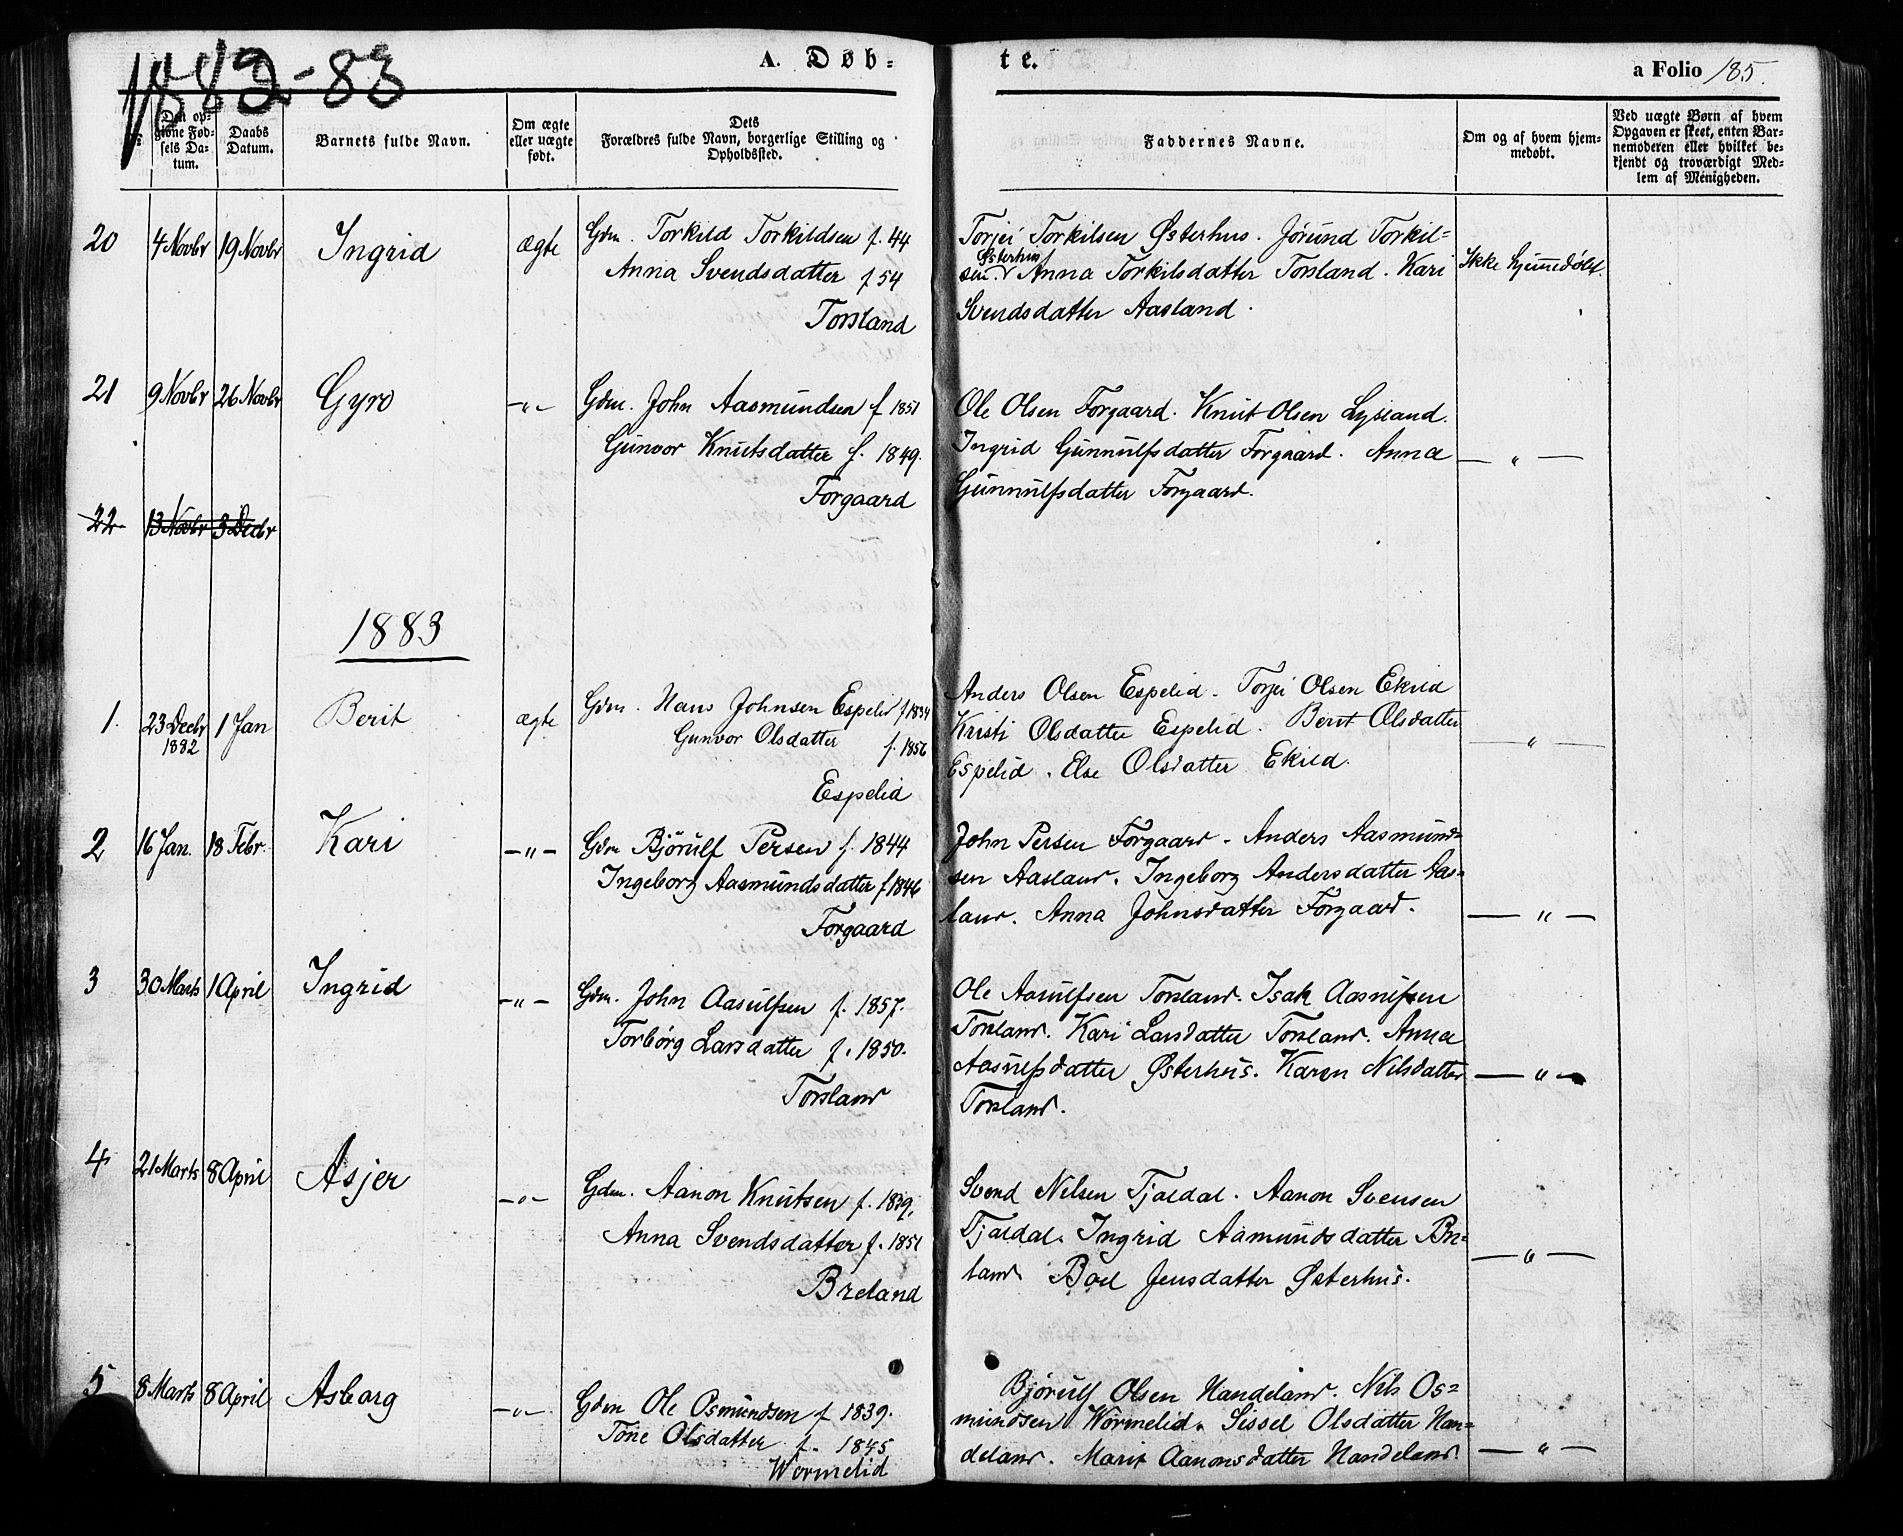 1882-83
A. Døb-
te.
a Folio 185.
Den op-
givne Fød-
sels Da-
tum.
Daabs
Datum.
Barnets fulde Navn.
Om ægte
eller uægte
født.
Dets
Forældres fulde Navn, borgerlige Stilling og
Opholdssted.
Faddernes Navne.
Om og af hvem hjem-
medøbt.
Ved uægte Børn af hvem
Opgaven er skeet, enten Bar-
nemoderen eller hvilket be-
kjendt og troværdigt Med-
lem af Menigheden.
20 4 Novbr 19 Novbr Ingrid ægte Gdm. Torkild Torkildsen f. 44
Anna Svendsdatter f 54
Torsland
Torjei Torkilsen Østerhus. Jørund Torkil-
Østerhus
sen. Anna Torkilsdatter Torsland. Kari
Svendsdatter Aasland.
Ikke hjemmedøbt.
21 9 Novbr 26 Novbr Gyro -"- Gdm. John Aasmundsen f 1851
Gunvor Knutsdatter f. 1849.
Forgaard
Ole Olsen Forgaard. Knut Olsen Lyseland.
Ingrid Gunnulfsdatter Forgaard. Anna — " —
Gunnulfsdatter Forgaard.
22 13 Novbr 3 Decbr
1883
1. 23 Decbr 1 Jan Berit ægte Gdm. Hans Johnsen Espelid f 1834
1882
Gunvor Olsdatter f. 1856
Espelid
Anders Olsen Espelid. Torjei Olsen Ekild
Kristi Olsdatter Espelid. Berit Olsdatter — " —
Espelid. Else Olsdatter Ekild.
2 16 Jan. 18 Febr. Kari -"- Gdm Bjørulf Persen f. 1844
Ingeborg Aasmundsdatter f 1846
Forgaard
John Persen Forgaard. Anders Aasmund-
sen Aasland. Ingeborg Andersdatter Aas-
land. Anna Johnsdatter Forgaard. — " —
3 30 Marts 1 April Ingrid -"- Gdm. John Aasulfsen f. 1857.
Torborg Larsdatter f. 1850.
Torsland
Ole Aasulfsen Torsland. Isak Aasulfsen
Torsland. Kari Larsdatter Torsland. Anna
Aasulfsdatter Østerhus. Karen Nilsdatter — " —
Torsland.
4 21 Marts 8 April Asjer -"- Gdm. Aanon Knutsen f. 1839.
Anna Svendsdatter f. 1851
Breland
Svend Nilsen Tjaldal. Aanon Svensen
Tjaldal. Ingrid Aamundsdatter Bre-
land Boel Jensdatter Østerhus. — " —
5 8 Marts 8 April Asborg -"- Gdm Ole Osmundsen f 1839.
Tone Olsdatter f. 1845
Wormelid
Bjørulf Olsen Handeland. Nils Os-
mundsen Wormelid. Sissel Olsdatter Han-
deland. Marit Aanonsdatter Handeland. — " —